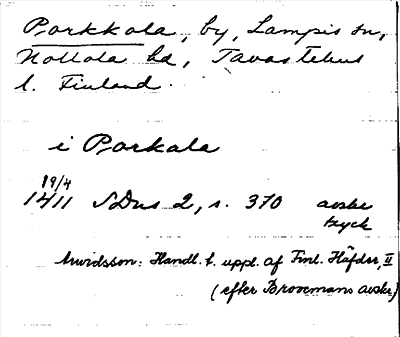 Porkkola, by, Lampis sn,
Hollola hd, Tavastehus
l. Finland.
i Porkala
19/4
1411 SDns 2, s. 370 avskr
tryck
Arwidsson: Handl. t. uppl. af Finl. Häfder, II
(efter Brovemans avskr)